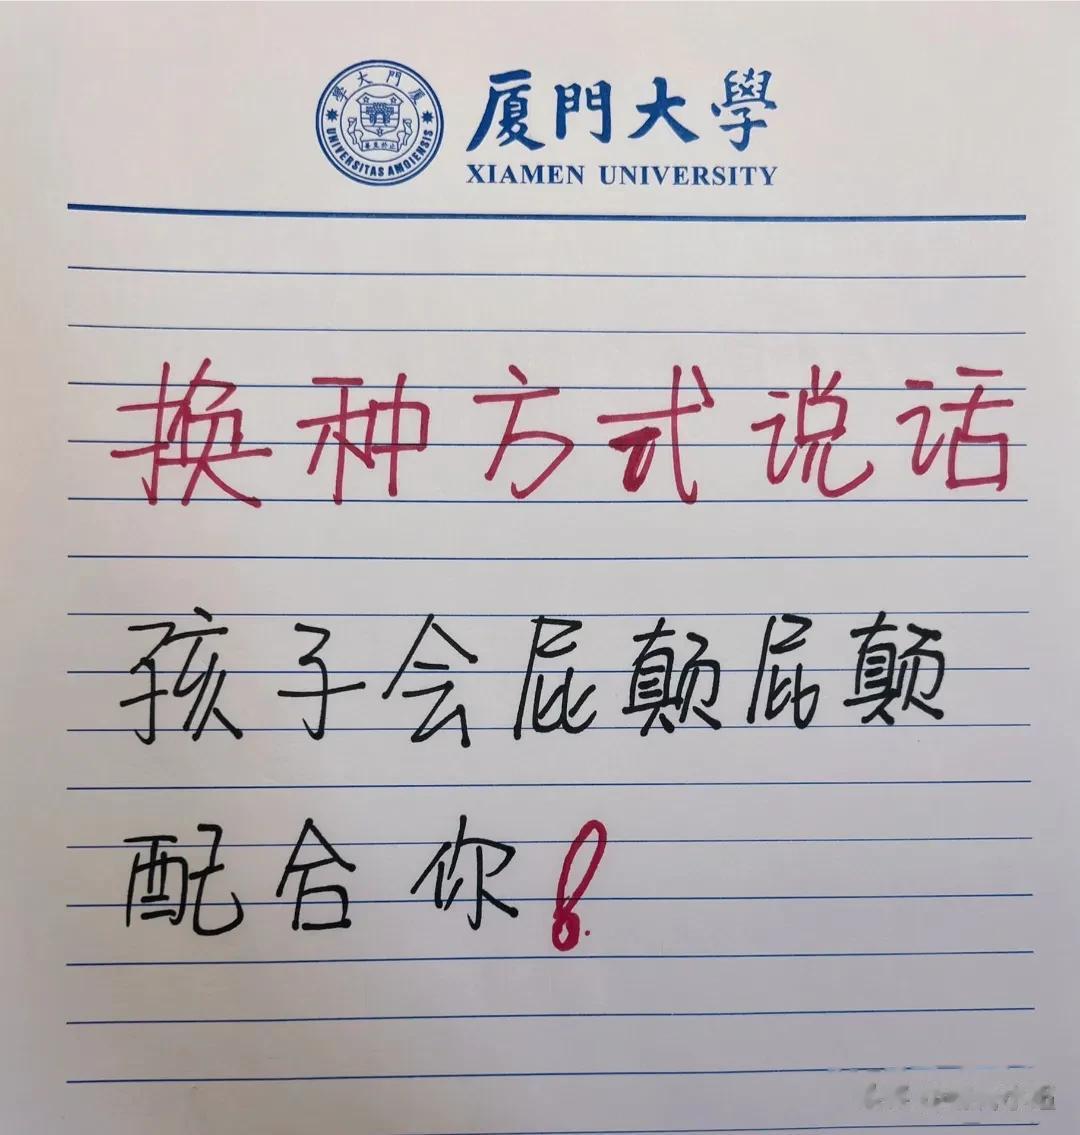 厦門大學
XIAMEN UNIVERSITY
廈門大學
UNIVERSITAS AMOIENSIS
换种方式说话
孩子会屁颠屁颠
配合你！